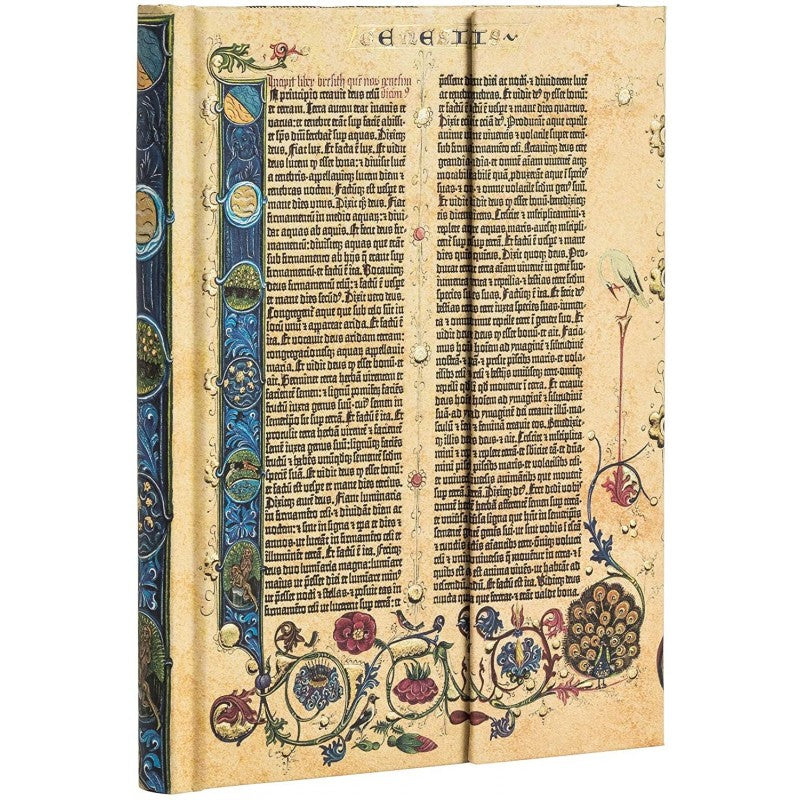 GENESIS
Incipit liber bresith quē nos genesim
A principio creavit deus celū dicim⁹
et terram. Terra autem erat inanis et
vacua: et tenebre erāt sup faciē abissi:
et sp̄s dn̄i ferebat̄ sup aquas. Dixitq;
deus. Fiat lux. Et facta ē lux. Et vidit
deus lucem ꝙ esset bona: et divisit lucē
a tenebris·appellavitq; lucem diem et
tenebras noctem. Factūq; est vespe et
mane dies unus. Dixit q̄; deus. Fiat
firmamentū in medio aquarū: et divi-
dat aquas ab aquis. Et fecit deus fir-
mamentū: divisitq; aquas que erāt
sub firmamento ab hijs q̄ erant sup
firmamentū: et factū ē ita. Vocavitq;
deus firmamentū celū: et factū ē vespe
et mane dies secūd⁹. Dixit vero deus.
Congregent̄ aque que sub celo sūt in
locū unū et appareat arida. Et factū ē
ita. Et vocavit deus aridam terram:
congregacionesq; aquarū appellavit
maria. Et vidit deus ꝙ esset bonū·et
ait. Germinet terra herbā virentem et
facientē semen: et lignū pomiferū faciēs
fructū iuxta genus suū·cui⁹ semen in
semetipso sit sup terrā. Et factū ē ita. Et
protulit terra herbā virente et faciente
semē iuxta genus suū: lignūq; faciēs
fructū et habēs unūqdq; semente scdm
specie suā. Et vidit deus ꝙ esset bonū:
et factū est vespe et mane dies tercius.
Dixitq; autē deus. Fiant luminaria
in firmamēto celi·et dividāt diem ac
noctem: et sint in signa et tpa et dies et
annos: ut luceāt in firmamēto celi et
illuminēt terrā. Et factū ē ita. Fecitq;
deus duo luminaria magna: lumiare
maius ut pesset diei et lumiare min⁹
ut pesset nocti et stellas·et posuit eas in
firmamēto celi ut lucerent sup terrā: et
pessent diei ac nocti·et dividerent lucē
ac tenebras. Et vidit de⁹ ꝙ esset bonū:
et factū ē vespe et mane dies quartus.
Dixit eciā de⁹. Producant aque reptile
anime vivētis et volatile super terrā·
sub firmamēto celi. Creavitq; deus cete
grandia·et omnē aīam vivente atq;
motabilē quā pduxerāt aque ī species
suas·et omne volatile scdm gen⁹ suū.
Et vidit deus ꝙ esset bonū·benedixitq;
eis dicens. Crescite et multiplicamini·et
replete aquas maris·avesq; multiplicē-
tur sup terrā. Et factū ē vespe et mane
dies quītus. Dixit quoq; deus. Pro-
ducat terra aīam vivente in gene suo·
iumenta et reptilia·et bestias terre scdm
species suas. Factūq; ē ita. Et fecit de⁹
bestias terre iuxta species suas·iumen-
ta et omne reptile terre ī genere suo. Et
vidit deus ꝙ esset bonū·et ait. Facia-
mus hoīem ad ymaginē et similitudinē
nostrā·et presit piscib⁹ maris·et vola-
tilib⁹ celi et bestijs universeq; terre·omniq;
reptili qd movetur ī terra. Et creavit
deus hoīem ad ymaginē et similitudinē
suā·ad ymaginem dei creavit illū·ma-
sculū et feminā creavit eos. Benedixit-
q; illis deus·et ait. Crescite et multiplica-
mini et replete terrā·et subicite eā·et dn̄a-
mini piscib⁹ maris·et volatilib⁹ celi·
et universis animātib⁹ que movent̄
sup terrā. Dixitq; de⁹. Ecce dedi vobis
omnē herbā afferentē semen sup terrā·
et universa ligna que habēt in semetipsis
semente generis sui·ut sint vobis ī escā
et cūctis aīantib⁹ terre·omniq; volucri
celi et universis q̄ movent̄ in terra·et ī
quib⁹ est anima vivēs·ut habeāt ad
vescendū. Et factū est ita. Viditq; deus
cuncta que fecerat·et erāt valde bona.